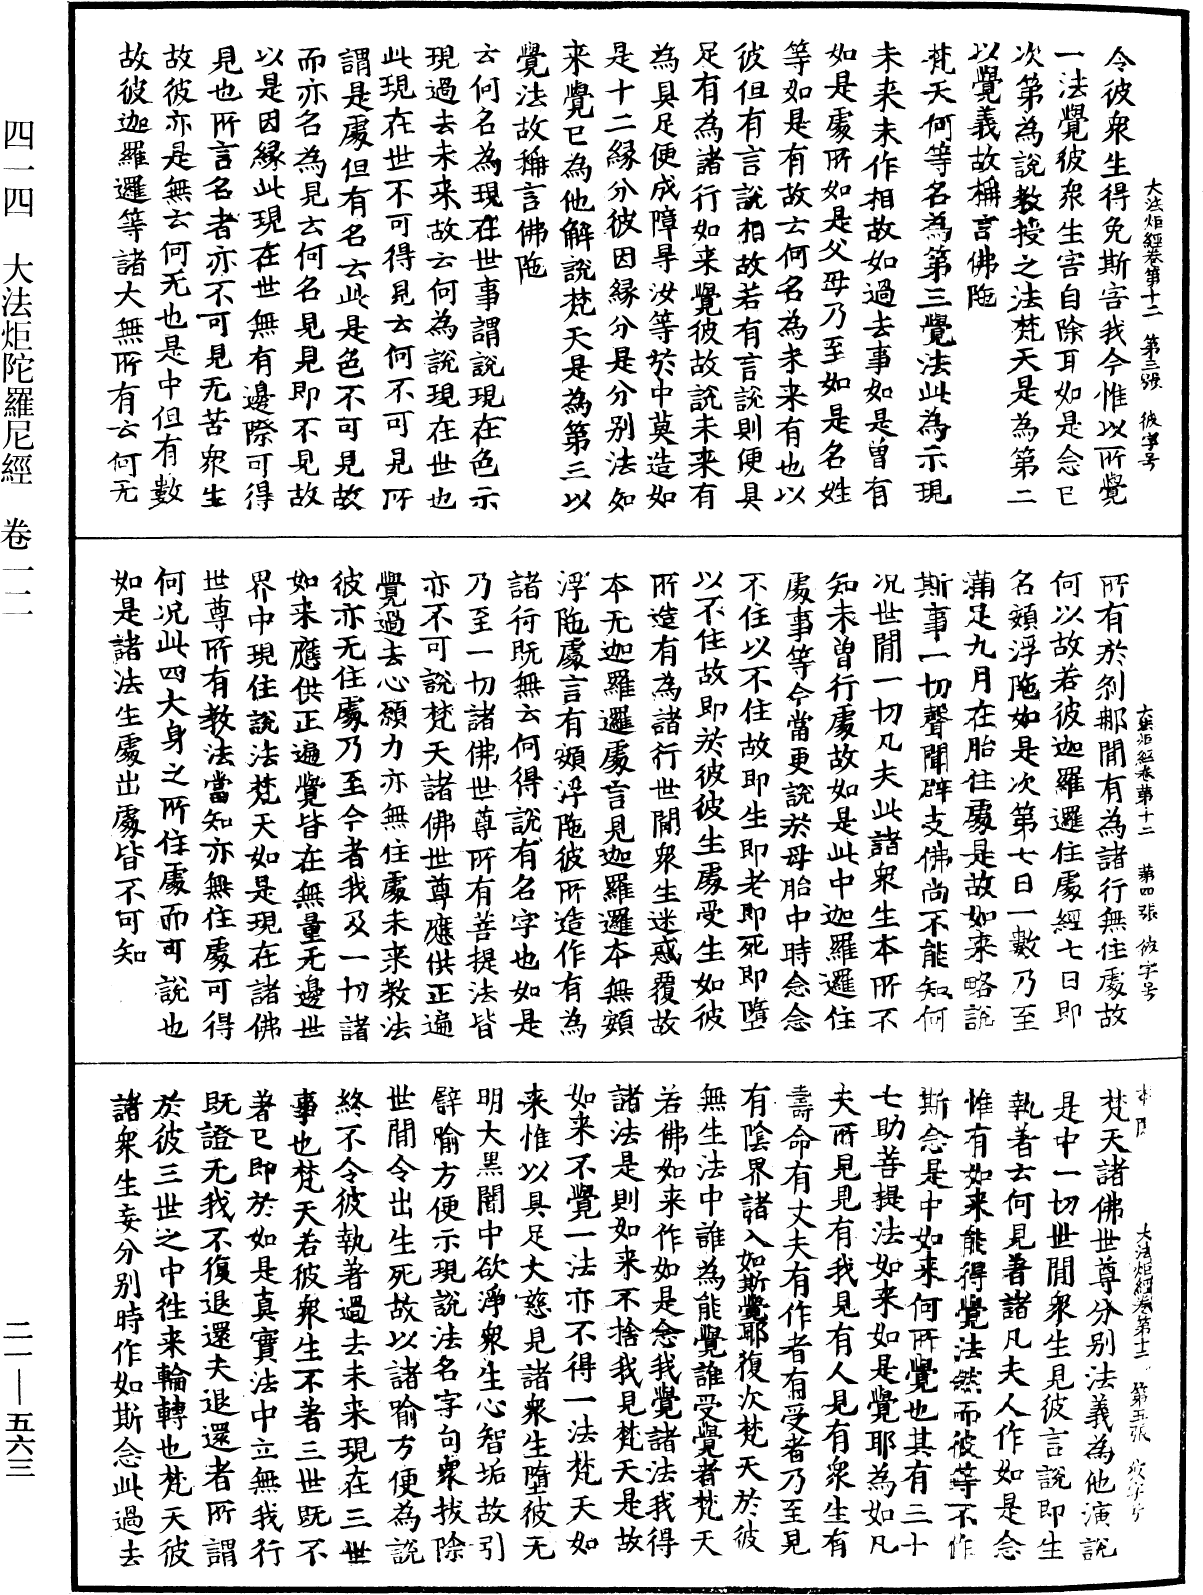 四一四　大法炬陀羅尼經　卷一二
二一—五六三
大法炬經卷第十二　第三張　彼字号
令彼衆生得免斯害我今惟以所覺
一法覺彼衆生害自除耳如是念已
次第為說教授之法梵天是為第二
以覺義故稱言佛陁
梵天何等名為第三覺法此為示現
未来未作相故如過去事如是曽有
如是處所如是父母乃至如是名姓
等如是有故去何名為未来有也以
彼但有言說相故若有言說則便具
足有為諸行如来覺彼故說未来有
為具足便成障㝵汝等於中莫造如
是十二縁分彼因縁分是分别法如
来覺已為他解說梵天是為第三以
覺法故稱言佛陁
去何名為現在世事謂說現在色示
現過去未来故云何為說現在世也
此現在世不可得見云何不可見所
謂是處但有名言此是色不可見故
而亦名為見去何名見見即不見故
以是因縁此現在世無有邊際可得
見也所言名者亦不可見无苦衆生
故彼亦是無去何无也是中但有數
故彼迦羅邏等諸大無所有云何无
大法炬經卷第十二　第四張　彼字号
所有於刹那間有為諸行無住處故
何以故若彼迦羅邏住處經七日即
名頞浮陁如是次第七日一數乃至
滿足九月在胎住處是故如来略說
斯事一切聲聞辟支佛尚不能知何
况世間一切凡夫此諸衆生本所不
知未曽行處故如是此中迦羅邏住
處事等今當更說於母胎中時念念
不住以不住故即生即老即死即墮
以不住故即於彼彼生處受生如彼
所造有為諸行世間衆生迷惑覆故
本无迦羅邏處言見迦羅邏本無頞
浮陁處言有頞浮陁彼所造作有為
諸行既無云何得說有名字也如是
乃至一切諸佛世尊所有菩提法皆
亦不可說梵天諸佛世尊應供正遍
覺過去心願力亦無住處未来教法
彼亦无住處乃至今者我及一切諸
如来應供正遍覺皆在無量无邊世
界中現住說法梵天如是現在諸佛
世尊所有教法當知亦無住處可得
何况此四大身之所住處而可說也
如是諸法生處出處皆不可知
大法炬經卷第十二　第五張　彼字号
梵天諸佛世尊分别法義為他演說
是中一切世間衆生見彼言說即生
執著去何見著諸凡夫人作如是念
惟有如来能得覺法然而彼等不作
斯念是中如来何所覺也其有三十
七助菩提法如来如是覺耶為如凡
夫所見見有我見有人見有衆生有
壽命有丈夫有作者有受者乃至見
有陰界諸入如斯覺耶復次梵天於彼
無生法中誰為能覺誰受覺者梵天
若佛如来作如是念我覺諸法我得
諸法是則如来不捨我見梵天是故
如来不覺一法亦不得一法梵天如
来惟以具足大慈見諸衆生墮彼无
明大黒闇中欲淨衆生心智垢故引
譬喻方便示現說法名字句衆拔除
世間令出生死故以諸喻方便為說
終不令彼執著過去未来現在三世
事也梵天若彼衆生不著三世既不
著已即於如是真實法中立無我行
既證无我不復退還夫退還者所謂
於彼三世之中往来輪轉也梵天彼
諸衆生妄分别時作如斯念此過去